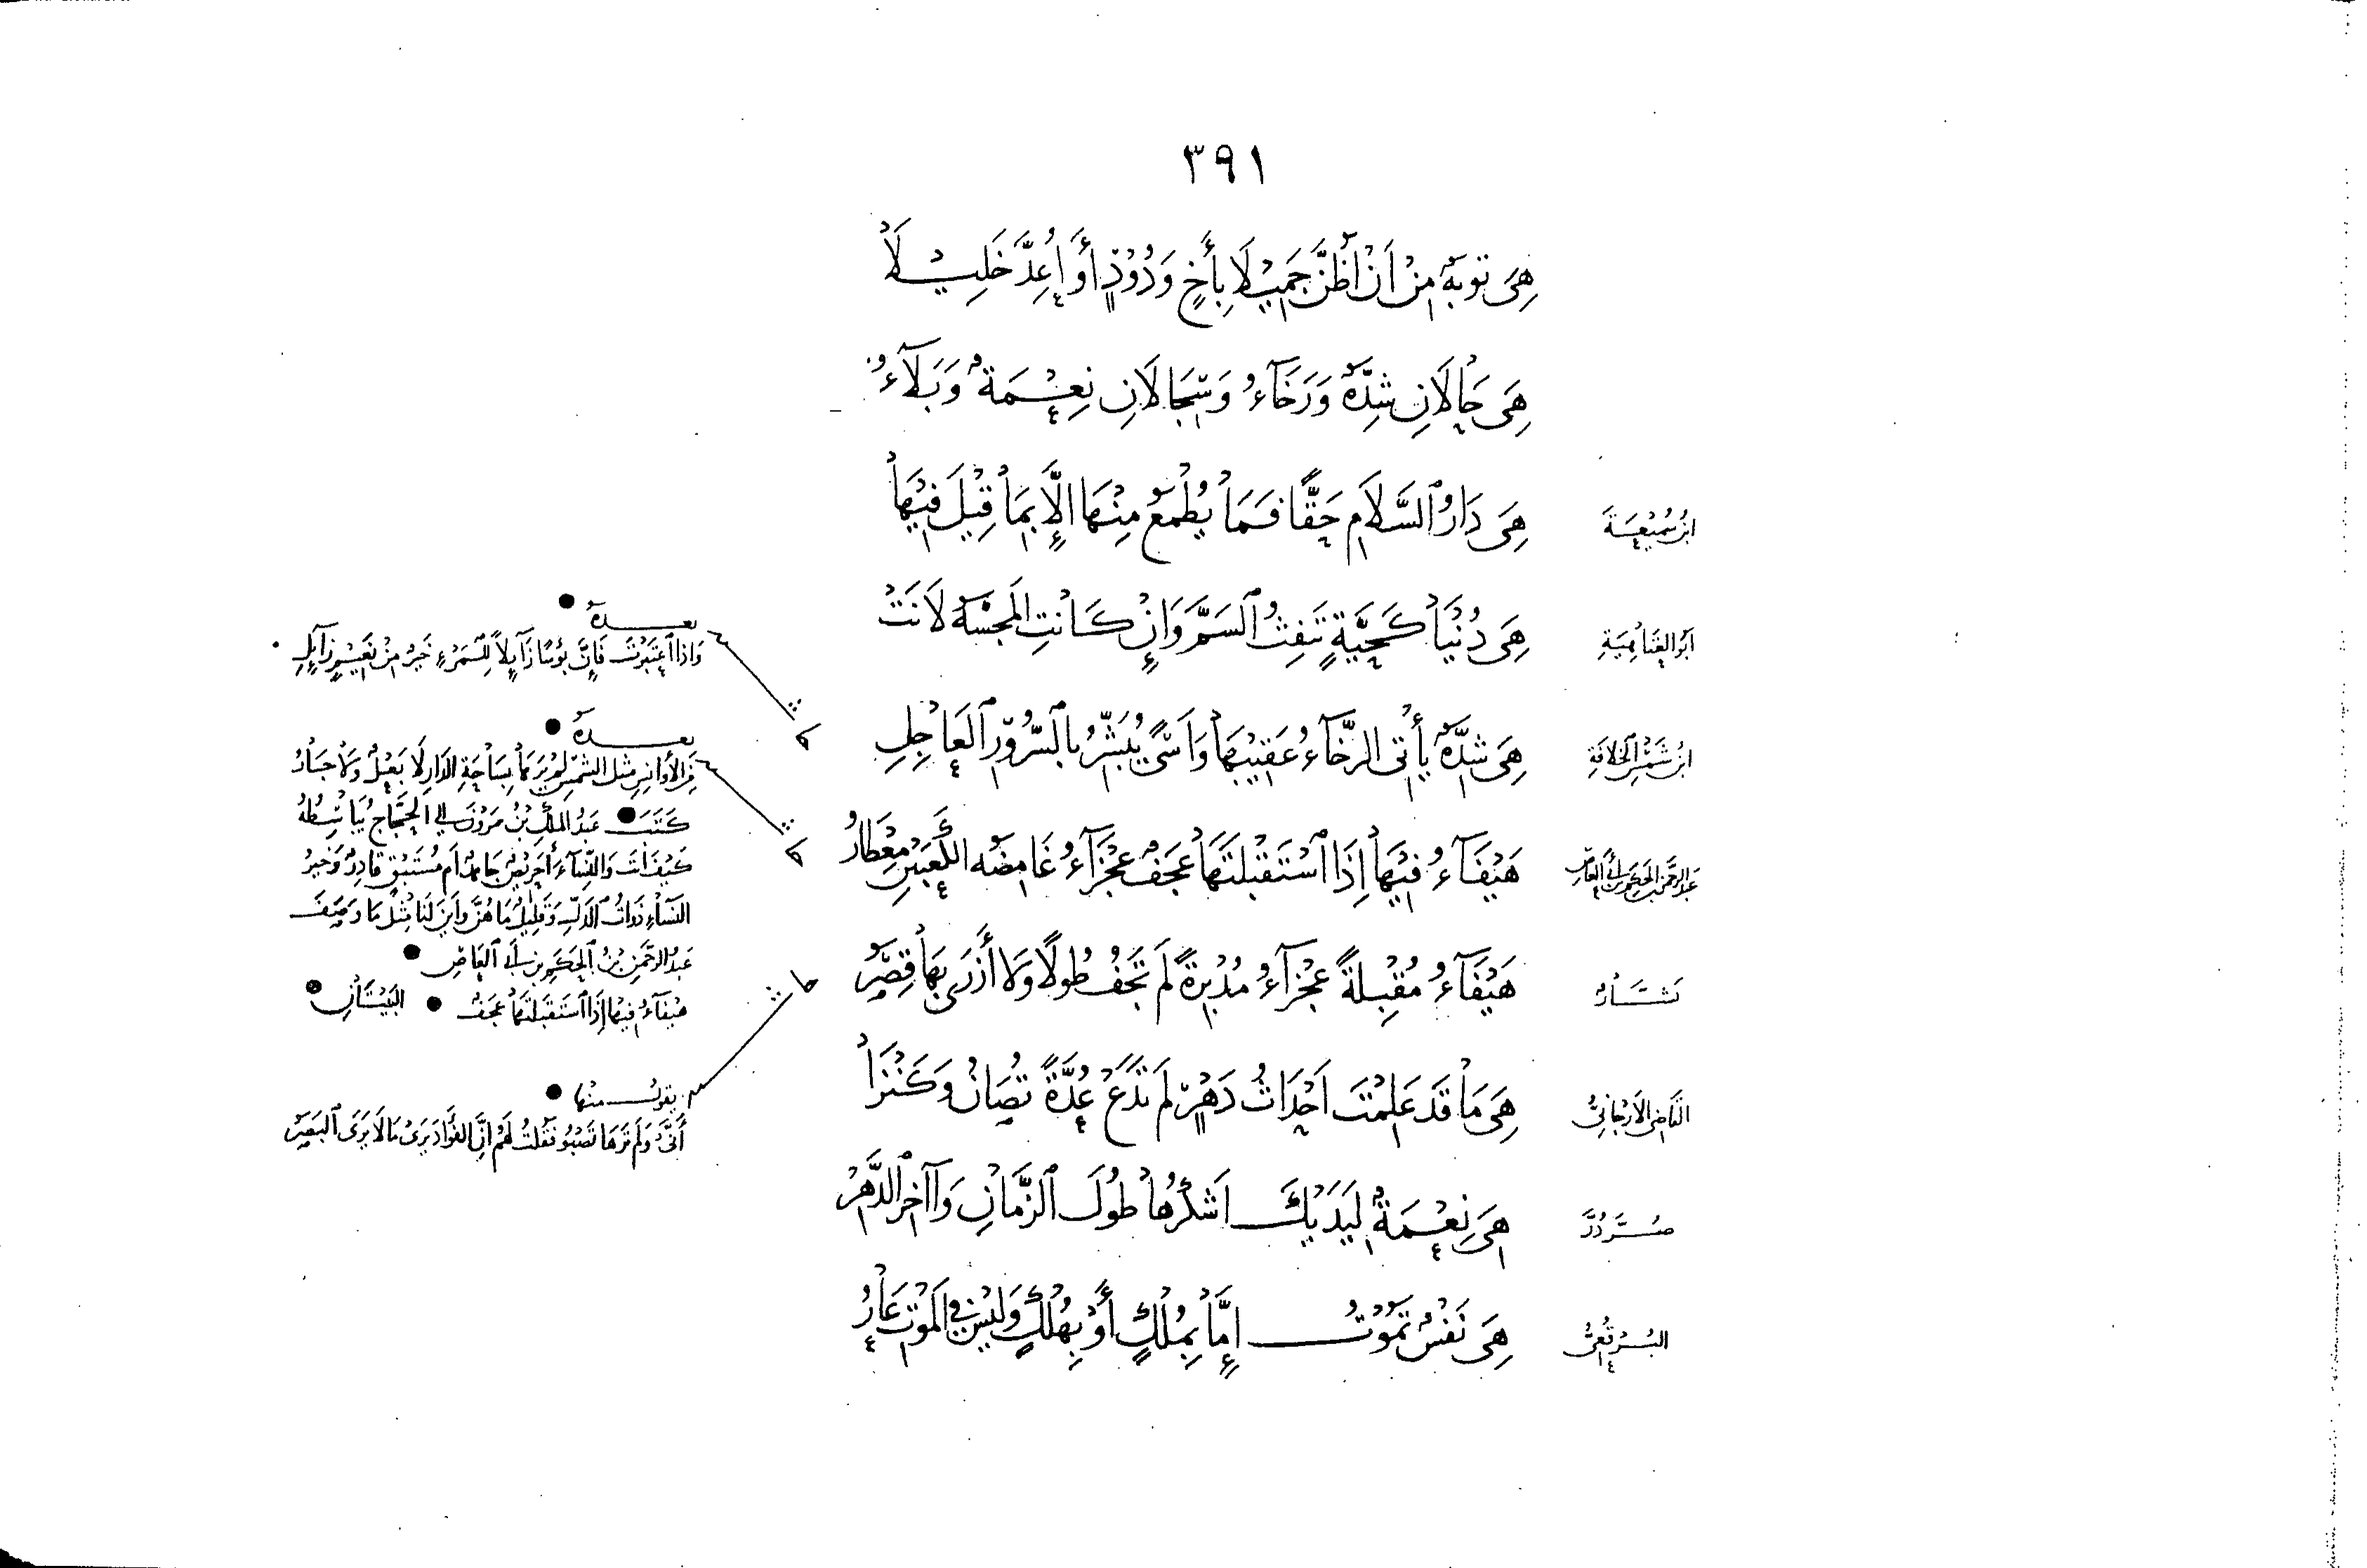 ٣٩١
هِيَ تَوبَةٌ مِنْ اَنْ اَظُنَّ جَمِيْلَا بِأَخٍ وَدُوْدٍ أَوْ اُعِدَّ خَلِيْلَا
هِيَ حَالَانِ شِدَّةٌ وَرَخَآءُ وَسِجَالَانِ نِعْمَةٌ وَبَلَآءُ
هِيَ دَارُ السَّلَامِ حَقًّا فَمَا يُطْمَعُ مِنْهَا إِلَّا بِمَا قِيْلَ فِيْهَا
اَبُو العَتَاهِيَةِ
هِيَ دُنْيَا كَحَيَّةٍ تَنفِثُ السَّمَّ وَاِنْ كَانَتِ المَجَسَّةُ لَانَتْ
ابْنُ شَمْسِ الخِلَافَةِ
هِيَ شِدَّةٌ يَأْتِي الرَّخَآءُ عَقِيْبَهَا وَاَسًى يُبَشِّرُ بِالسُّرُوْرِ العَاجِلِ
عَبْدُ الرَّحمنِ بنُ الحَكَمِ بنِ أَبي العَاصِ
هَيْفَآءُ فِيْهَا إِذَا اسْتَقْبَلْتَهَا عَجَفٌ عَجْزَآءُ غَامِضَةُ الكَعْبَيْنِ مِعْطَارُ
بَشَّارٌ
هَيْفَآءُ مُقْبِلَةً عَجْزَآءُ مُدْبِرَةً لَم تَجْفُ طُولًا وَلَا أَزرَى بِهَا قِصَرُ
القَاضِي الأَرَّجَانِيُّ
هِيَ مَا قَد عَلِمْتَ اَحْدَاثُ دَهْرٍ لَم تَدَعْ عُدَّةً تُصَانُ وَكَنْزَا
صُرَّدُرَّ
هِيَ نِعْمَةٌ لِيَدَيْكَ اَشْكُرُهَا طُولَ الزَّمَانِ وَآخِرَ الدَّهْرِ
هِيَ نَفْسٌ تَمُوْتُ إِمَّا بِمُلْكٍ أَوْ بِهُلْكٍ وَلَيْسَ فِي المَوْتِ عَارُ
بعـــدهُ
وَاذَا اعْتَبَرْتَ فَإِنَّ بُؤسًا زَآيِلًا لِلْمَرْءِ خَيرٌ مِنْ نَعِيْمٍ زَآيِلِ
بعـــدهُ
مِنَ الأَوَانِسِ مِثلُ الشَّمْسِ لَم يَرَهَا بِسَاحَةِ الدَارِ لَا بَعْلٌ وَلَا جَارُ
كَتَبَ عَبْدُ المَلِكِ بْنُ مَرْوَانَ إِلَى الحَجَّاجِ يُبَاسِطُهُ
كَيْفَ أَنتَ وَالنِّسَآءُ
النسَاءِ ذَوَاتُ الدَلِّ وَقَلِيْلٌ مَا هُنَّ وَاَينَ لَنَا مِثْلُ مَا وَصَفَ
عَبْدُ الرَّحْمنِ بْنُ الحَكَمِ بنِ أَبي العَاصِ
هَيْفَآءُ فِيْهَا إِذَا اسْتَقبَلتَهَا عَجَفٌ البَيْتَانِ
يقولُ منها
أَنَّى وَلَم تَرَهَا تَصْبُو فَقُلتُ لَهُم إِنَّ الفُوَادَ يَرَى مَا لَا يَرَى البَصَرُ